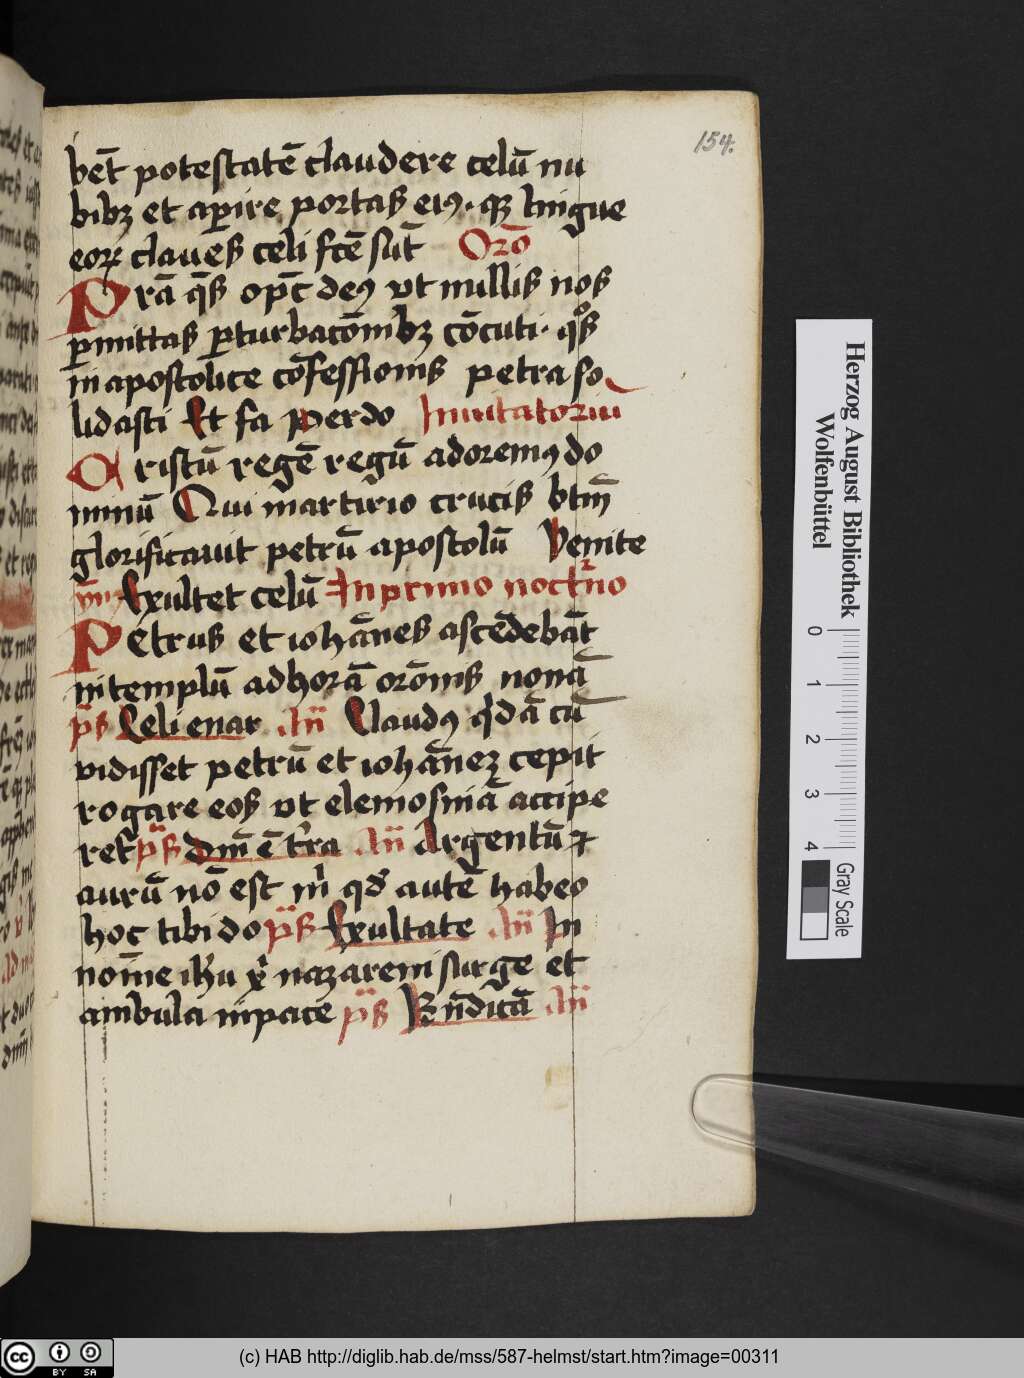 154.
bēt potestatē claudere celū nu
bibꝫ et aperire portas eiꝰ · qꝫ lingue
eoꝝ claues celi fcē sūt Orō
Prā q̄s op̄c deꝰ vt nullis nos
ꝑmittas ꝑturbacōnibꝫ cōcuti · qͦs
in apostolice cōfessionis petra so
lidasti Et fa ꝑ eꝛdo Inuitatoriū
Cristū regē regū adoremꝰ do
minū Qui martirio crucis btm̄
glorificauit petrū apostolū Venite
ymꝰ Exultet celū In primo noct̄no
Petrus et iohānes ascēdebāt
in templū ad horā orōnis nonā
p̄s Celi enar An̄ Claudꝰ q̄dā cū
vidisset petrū et iohānez cepit
rogare eos vt elemosinā accipe
ret p̄s Dn̄i ē t̄ra An̄ Argentū ⁊
aurū nō est m̄ qd̄ autē habeo
hoc tibi do p̄s Exultate An̄ In
noīe ihū xp̄i nazareni surge et
ambula in pace p̄s Bn̄dicā An̄
Herzog August Bibliothek
Wolfenbüttel
0
1
2
3
4
Gray Scale
(c) HAB http://diglib.hab.de/mss/587-helmst/start.htm?image=00311
cc BY SA